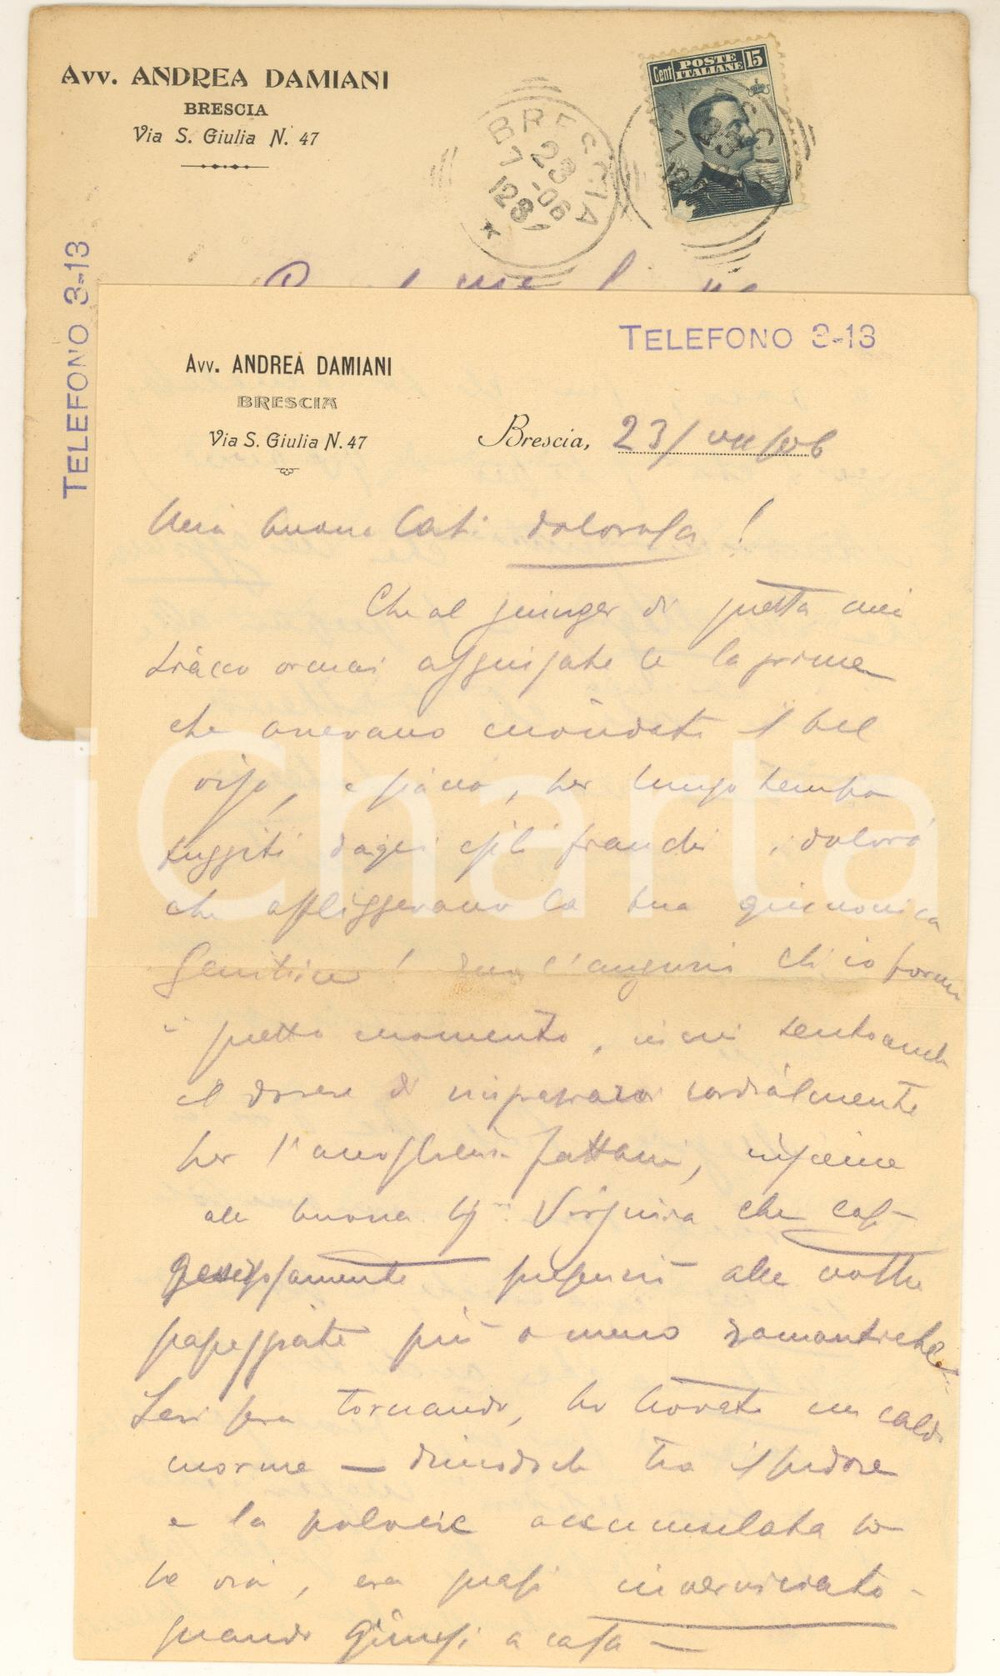 Avv. ANDREA DAMIANI
BRESCIA
Via S. Giulia N. 47
TELEFONO 3-13
BRESCIA
23
7 -06
12 8
Cent POSTE ITALIANE 15
TELEFONO 3-13
Avv. ANDREA DAMIANI
BRESCIA
Via S. Giulia N. 47
Brescia, 23/VII/06
Mia buona Cati dolorosa!
Che al giunger di questa mia
siano ormai asciugate le lacrime
che avevano inondato il bel
viso, e siano, per lungo tempo
fuggiti dagli occhi i dolori
che affliggevano la tua
Genitrice! Sono l'augurii ch'io formo
in questo momento, in cui sento anche
il dovere di ringraziarvi cordialmente
per l'accoglienza fattami, insieme
alla buona Sig.na Virginia che così
graziosamente presenziò alle vostre
passeggiate più o meno romantiche
Ieri sera tornando, ho trovato un caldo
enorme — dimodoché tra il sudore
e la polvere accumulata lungo
la via, era quasi inverniciato
quando giunsi a casa —
iCharta